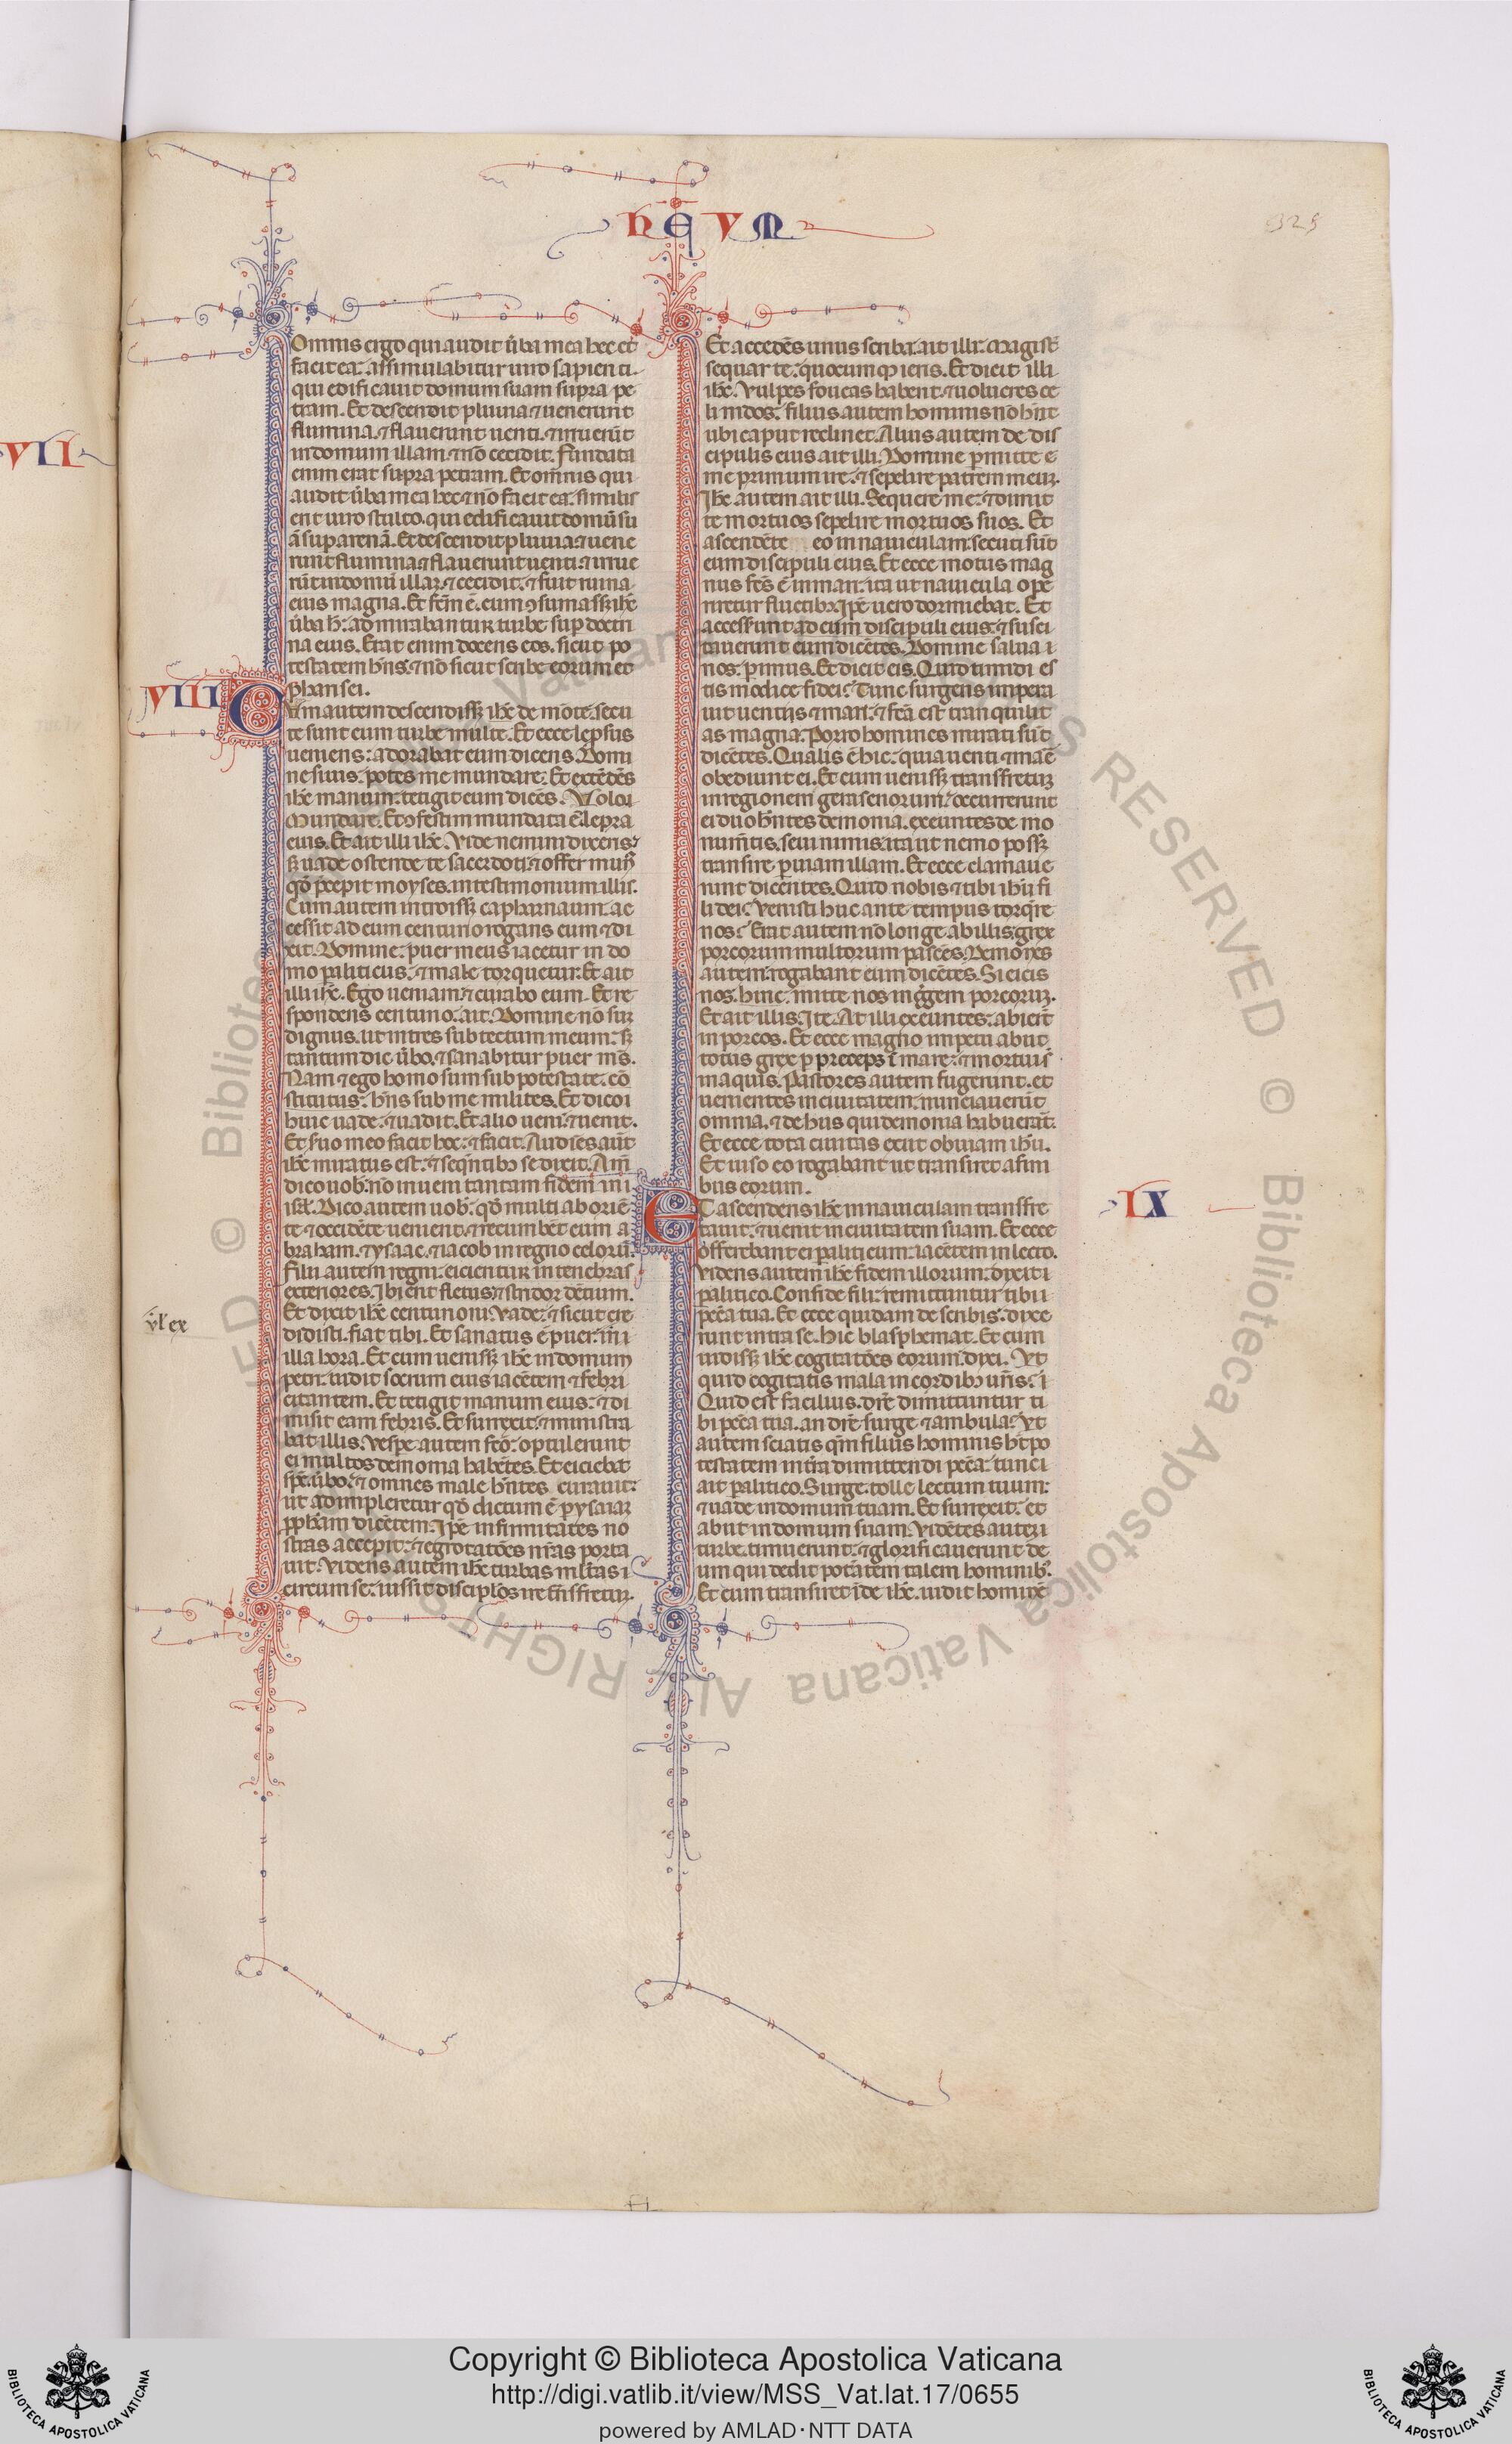 HEVM
325
Omnis ergo qui audit ūba mea hec et
facit ea: assimulabitur uiro sapienti.
qui edificauit domum suam supra pe
tram. Et descendit pluuia. ⁊ uenerunt
flumina. ⁊ flauerunt uenti. ⁊ irruerūt
in domum illam. ⁊ nō cecidit. Fundata
enim erat supra petram. Et omnis qui
audit ūba mea hec ⁊ nō facit ea: similis
erit uiro stulto. qui edificauit domū su
ā sup arenā. Et descendit pluuia. ⁊ uene
runt flumina. ⁊ flauerunt uenti. ⁊ irrue
rūt in domū illaꝫ. ⁊ cecidit. ⁊ fuit ruina
eius magna. Et fcm̄ ē. cum ꝯsumassꝫ ihc̄
ūba h̄: admirabantur turbe sup doctri
na eius. Erat enim docens eos. sicut po
testatem hn̄s. ⁊ nō sicut scribe eorum et
VIII
pharisei.
Cvm autem descendissꝫ ihc̄ de mōte: secu
te sunt eum turbe multe. Et ecce leprsus
ueniens: adorabat eum dicens. Domi
ne si uis. potes me mundare. Et extēdēs
ihc̄ manum: tetigit eum dicēs. Volo.
Mundare. Et ꝯfestim mundata ē lepra
eius. Et ait illi ihc̄. Vide nemini dixeris
sꝫ uade ostende te sacerdoti. ⁊ offer mun̄
qd̄ p̄cepit moyses. in testimonium illis.
Cum autem introissꝫ capharnaum: ac
cessit ad eum centurio rogans eum ⁊ di
xit. Domine. puer meus iacet in do
mo paliticus. ⁊ male torquetur. Et ait
illi ihc̄. Ego ueniam. ⁊ curabo eum. Et re
spondens centurio: ait. Domine nō suꝫ
dignus. ut intres sub tectum meum: sꝫ
tantum dic ūbo. ⁊ sanabitur puer ms̄.
Nam ⁊ ego homo sum sub potestate. cō
stitutus: hn̄s sub me milites. Et dico
huic uade. ⁊ uadit. Et alio ueni. ⁊ uenit.
Et suo meo fac hoc. ⁊ facit. Audies aūt
ihc̄ miratus est. ⁊ seqn̄tibꝫ se dixit. Am̄
dico uob̄. nō inueni tantam fidem in i
isrl̄. Dico autem uob̄. qd̄ multi ab oriē
te ⁊ occidēte uenient. ⁊ recumbēt cum a
braham. ⁊ ysaac. ⁊ iacob in regno celorū.
Filii autem regni: eicientur in tenebras
exteriores. Ibi erit fletus ⁊ stridor dētium.
Et dixit ihc̄ centurioni. Vade. ⁊ sicut cre
didisti. fiat tibi. Et sanatus ē puer: in i
illa hora. Et cum uenissꝫ ihc̄ in domum
petri: uidit socrum eius iacētem ⁊ febri
citantem. Et tetigit manum eius: ⁊ di
misit eam febris. Et surrexit. ⁊ ministra
bat illis. Vespe autem fcō: optulerunt
ei multos demonia habētes. Et eiciebat
sp̄c ūbo. ⁊ omnes male hn̄tes curauit:
ut adimpleretur qd̄ dictum ē p ysaiaꝫ
pphām dicētem. Ipē infirmitates no
stras accepit: ⁊ egrotatōes nr̄as porta
uit. Videns autem ihc̄ turbas ml̄tas i
circum se: iussit disciplos ire tn̄sfretuꝫ.
Et accedēs unus scriba. ait illi: Magistr̄
sequar te: quocumqꝫ ieris. Et dicit illi
ihc̄. Vulpes foueas habent. ⁊ uolucres ce
li nidos: filius autem hominis nō h̄t
ubi caput reclinet. Alius autem de dis
cipulis eius ait illi. Domine pmitte
me primum ire. ⁊ sepelire patrem meuꝫ.
Ihc̄ autem ait illi. Sequere me: ⁊ dimit
te mortuos sepelire mortuos suos. Et
ascendēte eo in nauiculam: secuti sūt
eum discipuli eius. Et ecce motus mag
nus fcs̄ ē in mari: ita ut nauicula ope
riretur fluctibꝫ. Ipē uero dormiebat. Et
accesserunt ad eum discipuli eius: ⁊ susci
tauerunt eum dicētes. Domine salua i
nos: perimus. Et dicit eis. Quid timidi es
tis modice fidei? Tunc surgens impera
uit uentis ⁊ mari: ⁊ fcā est tranquilit
as magna. Porro homines mirati sūt
dicētes. Qualis ē hic: quia uenti ⁊ mare
obediunt ei. Et cum uenissꝫ transfretuꝫ
in regionem gerasenorum: occurrerunt
ei duo hn̄tes demonia. exeuntes de mo
numtis. seui nimis. ita ut nemo possꝫ
transire p uiam illam. Et ecce clamaue
runt dicentes. Quid nobis ⁊ tibi ihū fi
li dei? Venisti huc ante tempus torqr̄e
nos? Erat autem nō longe ab illis: grex
porcorum multorum pascēs. Demones
autem: rogabant eum dicētes. Si eicis
nos. hinc: mitte nos in gregem porcoruꝫ.
Et ait illis. Ite. At illi exeuntes: abierūt
in porcos. Et ecce magno impetu abiit
totus grex p preceps ī mare: ⁊ mortui sūt
in aquis. Pastores autem fugerunt. et
uenientes in ciuitatem: nunciauerūt
omnia. ⁊ de hiis qui demonia habuerāt.
Et ecce tota ciuitas exiit obuiam ihū.
Et uiso eo rogabant ut transiret a fini
bus eorum.
IX
Et ascendens ihc̄ in nauiculam transfre
tauit: ⁊ uenit in ciuitatem suam. Et ecce
offerebant ei paliticum: iacētem in lecto.
Videns autem ihc̄ fidem illorum: dixit i
palitico. Confide fili: remittuntur tibi i
peccā tua. Et ecce quidam de scribis: dixe
runt intra se. Hic blasphemat. Et cum
uidissꝫ ihc̄ cogitatōes eorum: dixi. Vt
quid cogitatis mala in cordibꝫ ur̄is: i
Quid est facilius. dr̄e dimittuntur ti
bi peccā tua. an dr̄e surge ⁊ ambula? Vt
autem sciatis qm̄ filius hominis h̄t po
testatem in tr̄a dimittendi peccā: tunc i
ait palitico. Surge: tolle lectum tuum:
⁊ uade in domum tuam. Et surrexit: et
abiit in domum suam. Vidētes autem
turbe: timuerunt: ⁊ glorificauerunt de
um qui dedit potatem talem hominibꝫ.
Et cum transiret īde ihc̄. uidit hominē
VII
Copyright © Biblioteca Apostolica Vaticana
http://digi.vatlib.it/view/MSS_Vat.lat.17/0655
powered by AMLAD·NTT DATA
BIBLIOTECA APOSTOLICA VATICANA
BIBLIOTECA APOSTOLICA VATICANA